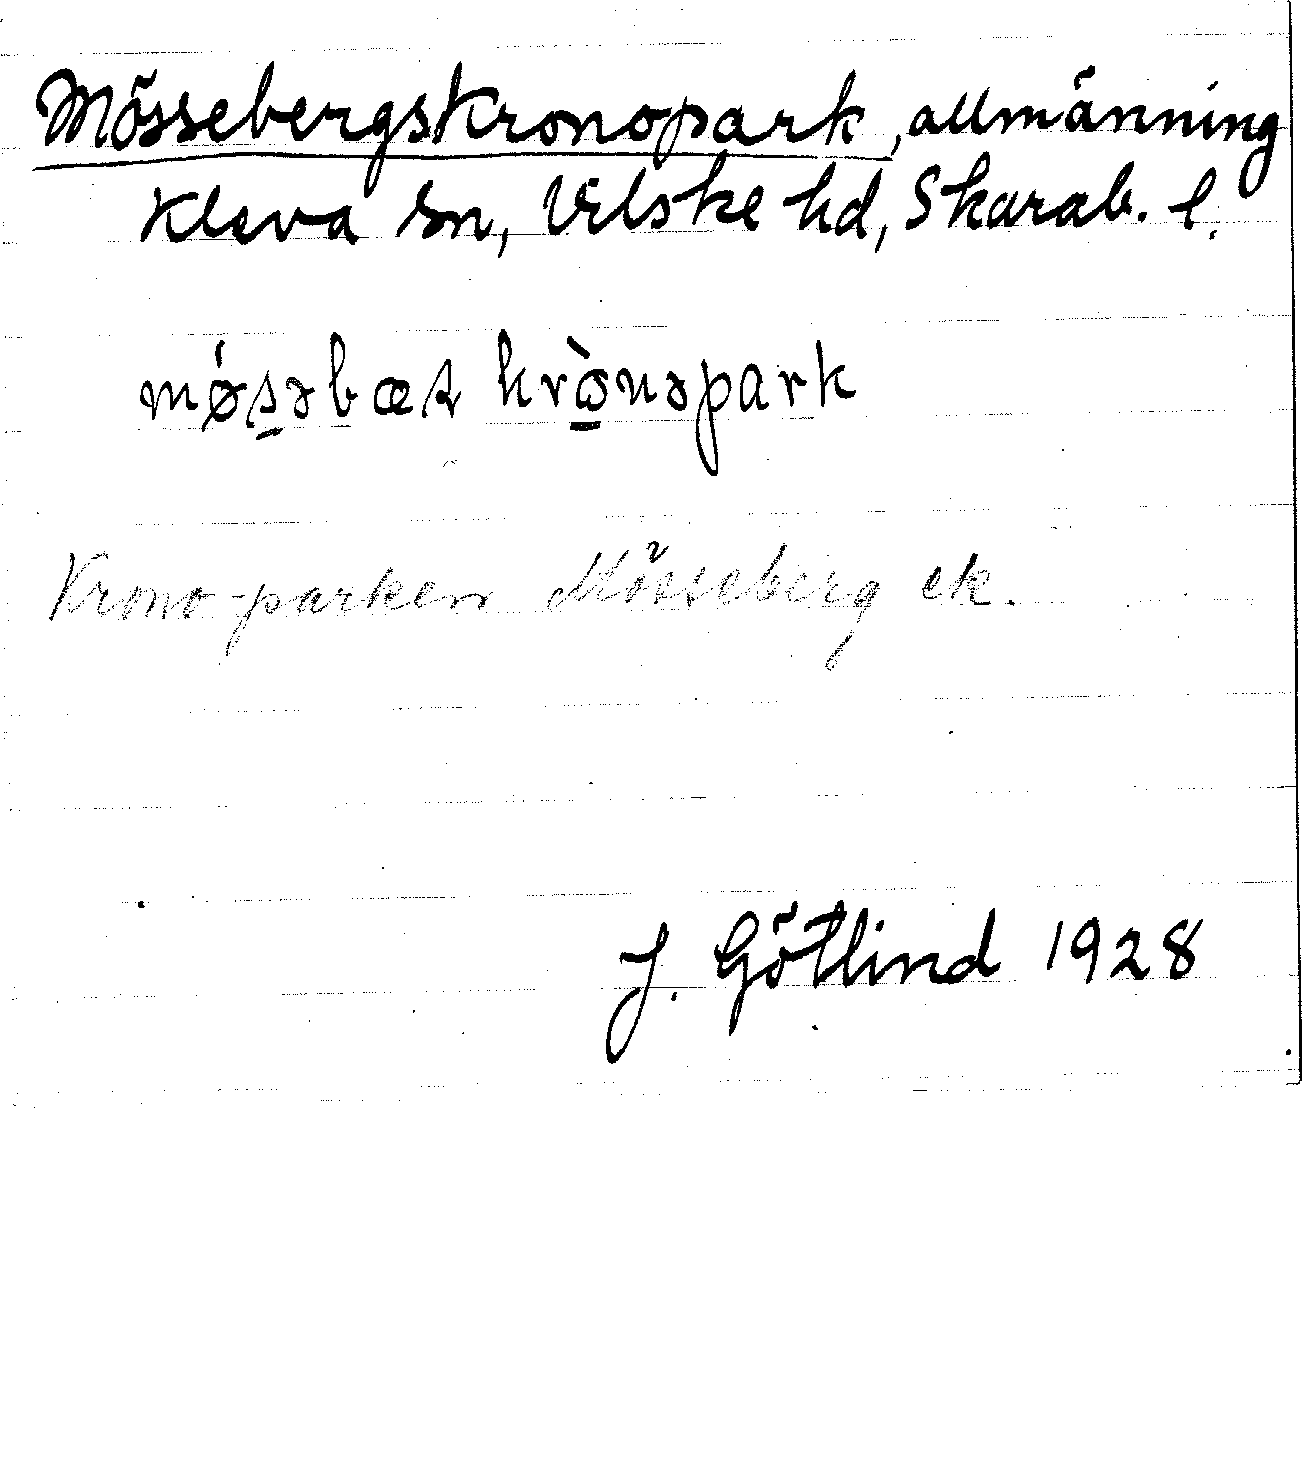 Mössebergskronopark, allmänning
Kleva sn, Vilske hd, Skarab. l.
krònəpark
Krono-parken Mösseberg ek.
J. Götlind 1928